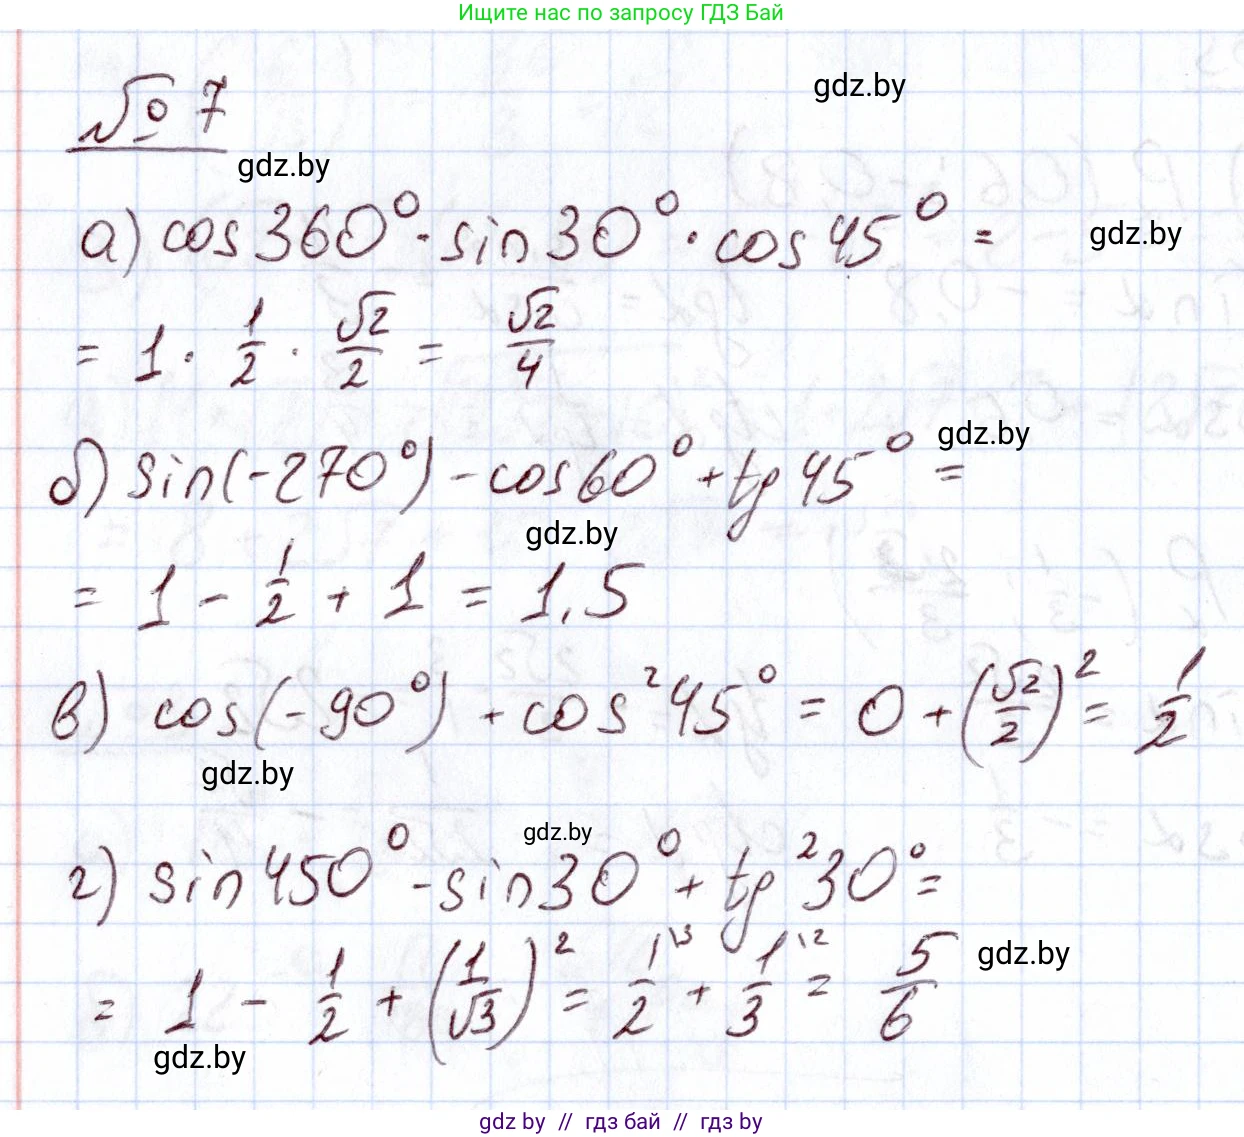 Ищите нас по запросу ГДЗ Бай
№ 7
gdz.by
gdz.by
а) cos 360° · sin 30° · cos 45° =
gdz.by
= 1 · 1/2 · √2/2 = √2/4
б) sin(-270°) - cos 60° + tg 45° =
gdz.by
gdz.by
= 1 - 1/2 + 1 = 1,5
в) cos(-90°) + cos²45° = 0 + (√2/2)² = 1/2
gdz.by
gdz.by
г) sin 450° - sin 30° + tg²30° =
= 1 - 1/2 + (1/√3)² = 1/2 \3 + 1/3 \2 = 5/6
gdz.by
gdz.by
gdz by // гдз бай // гдз by